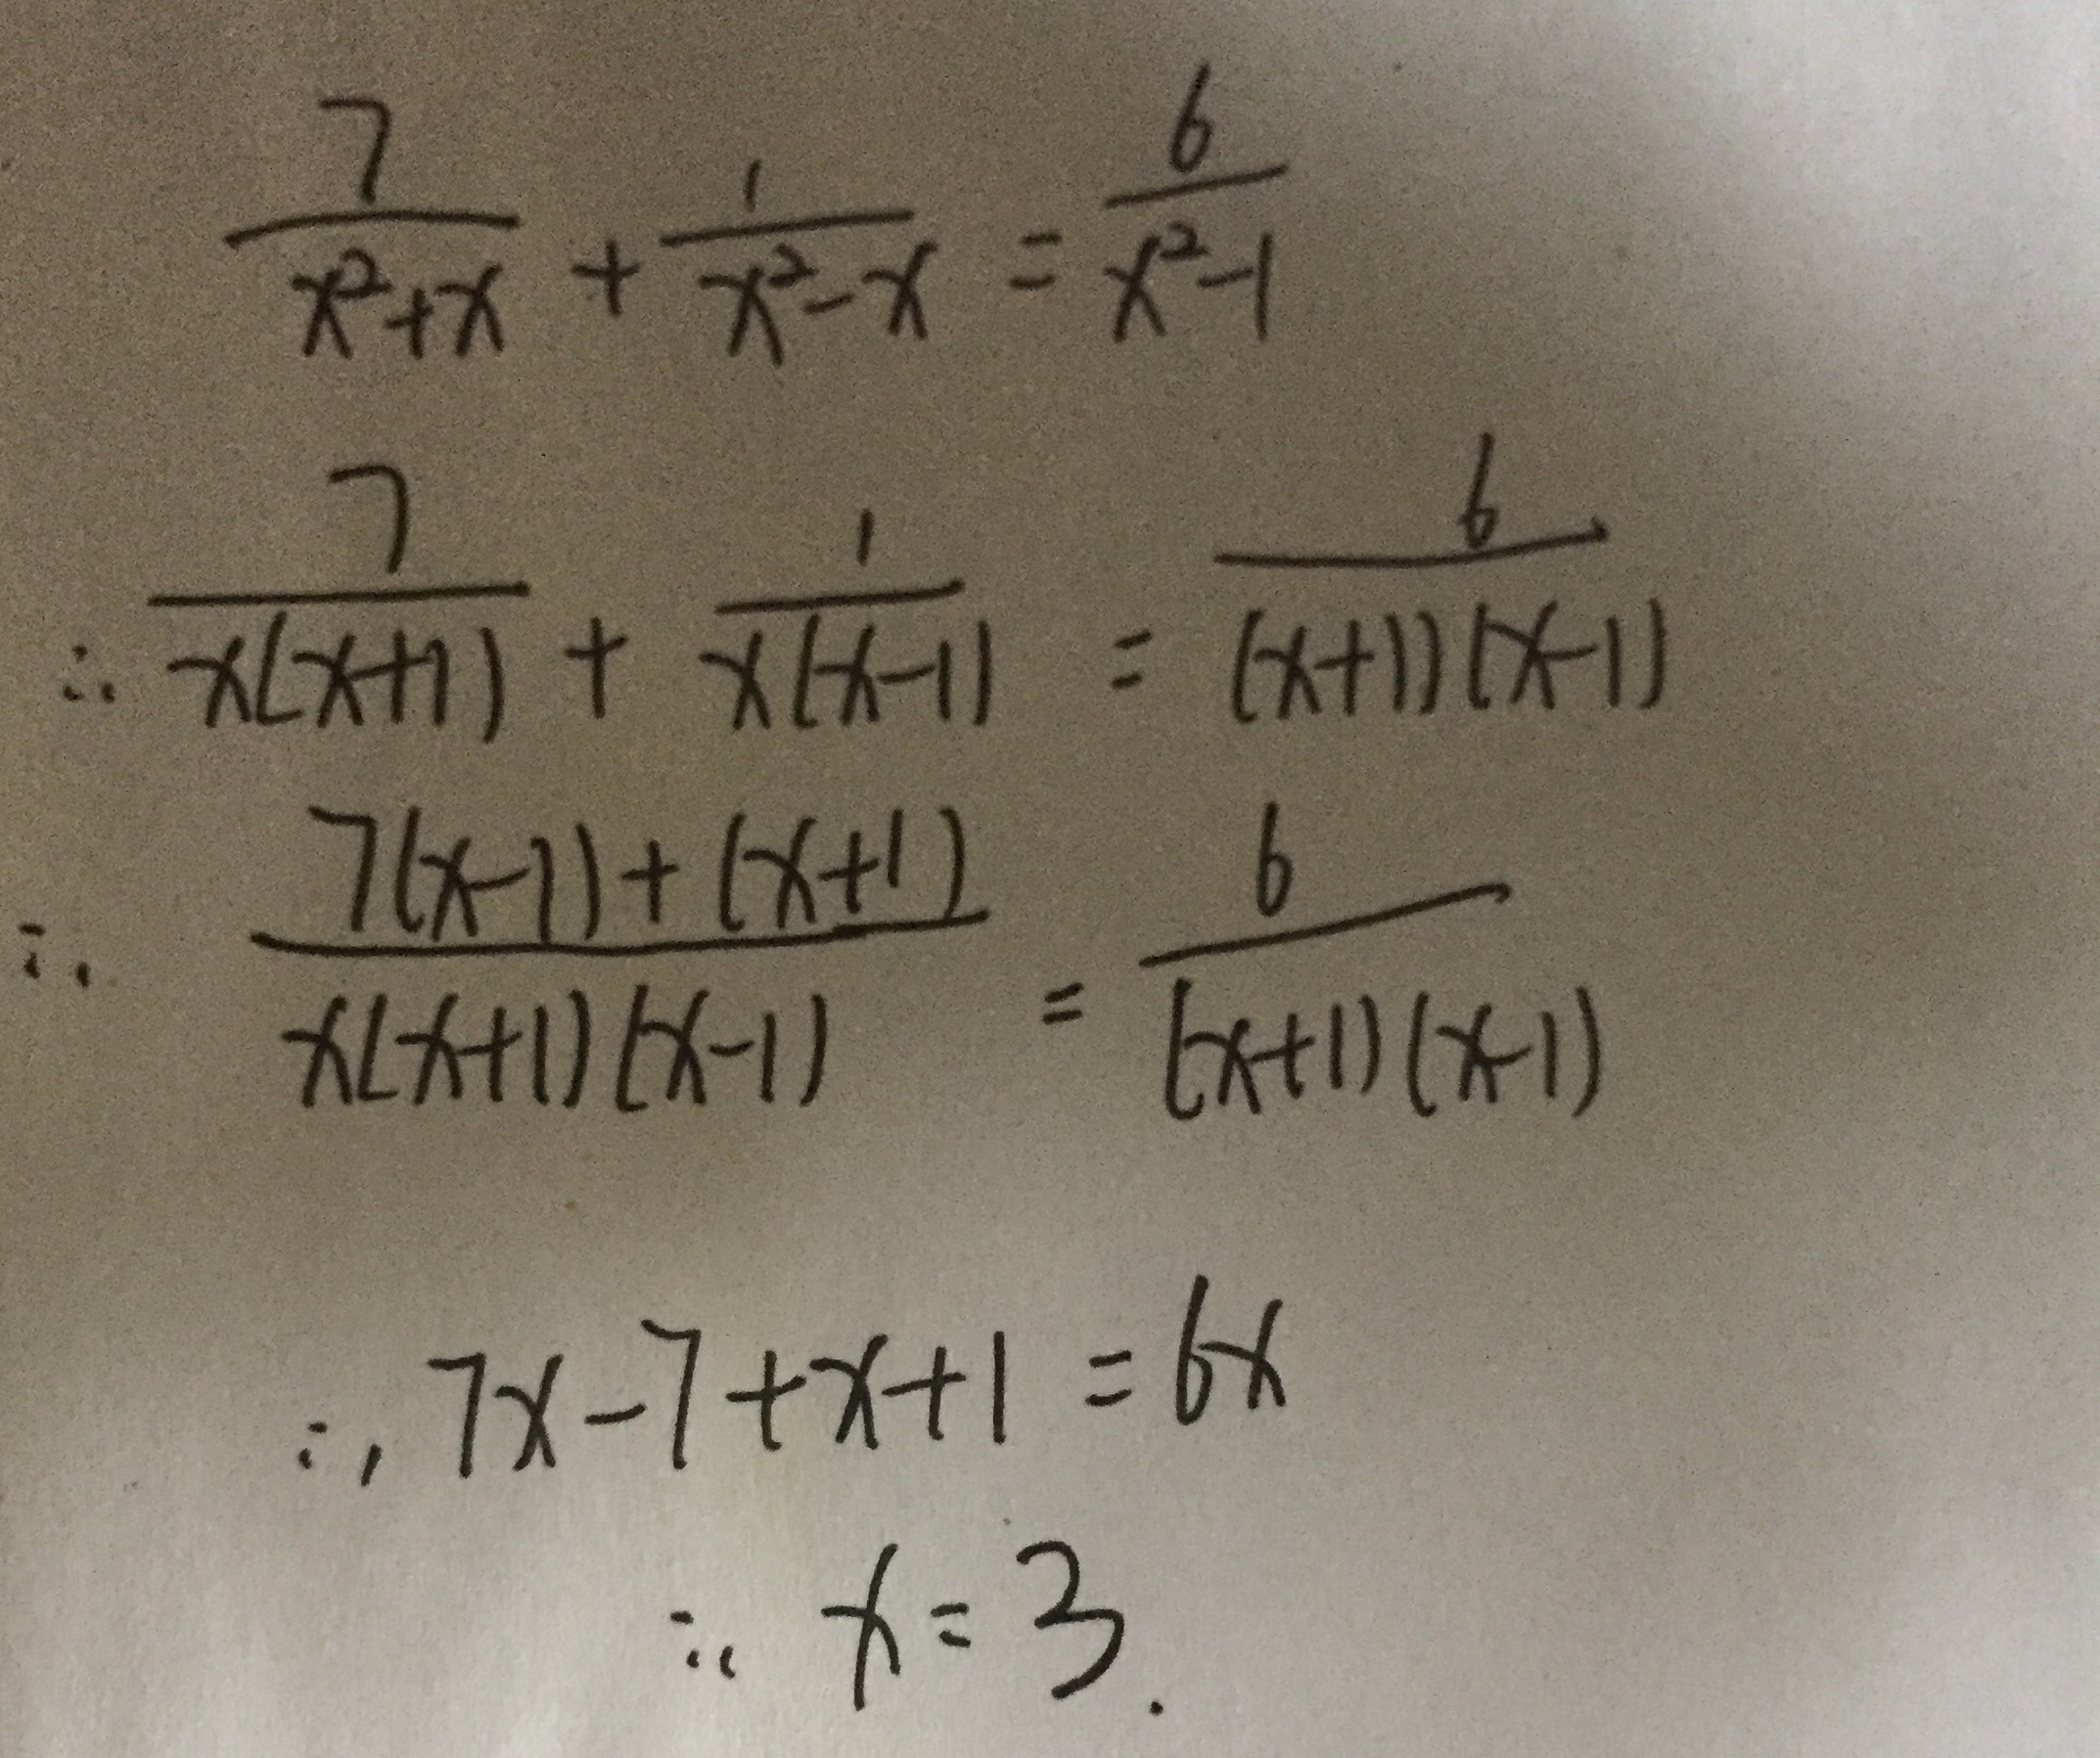 7/(x²+x) + 1/(x²-x) = 6/(x²-1)
∴ 7/(x(x+1)) + 1/(x(x-1)) = 6/((x+1)(x-1))
∴ (7(x-1)+(x+1))/(x(x+1)(x-1)) = 6/((x+1)(x-1))
∴ 7x-7+x+1=6x
∴ x=3.